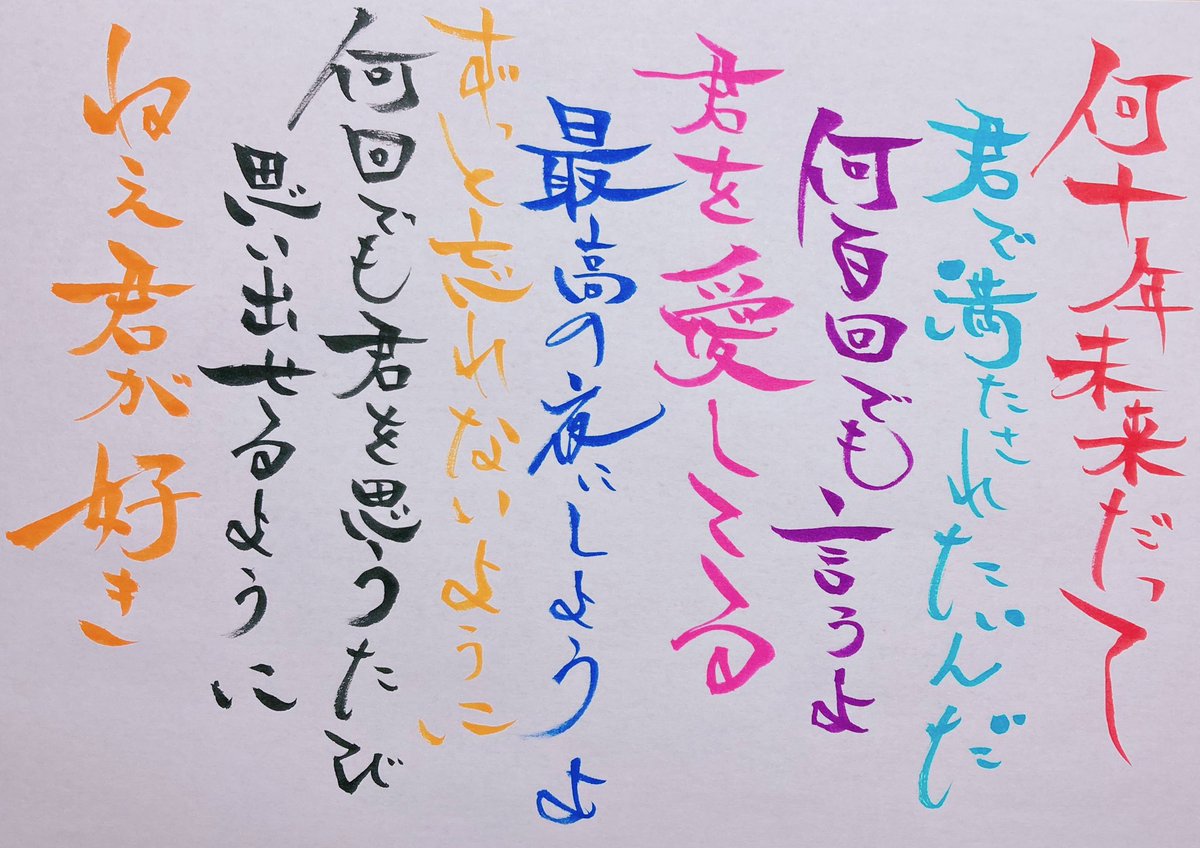 何十年未来だって
君で満たされたいんだ
何百回でも言うよ
君を愛してる
最高の夜にしようよ
ずっと忘れないように
何回でも君を思うたび
思い出せるように
ねえ君が好き